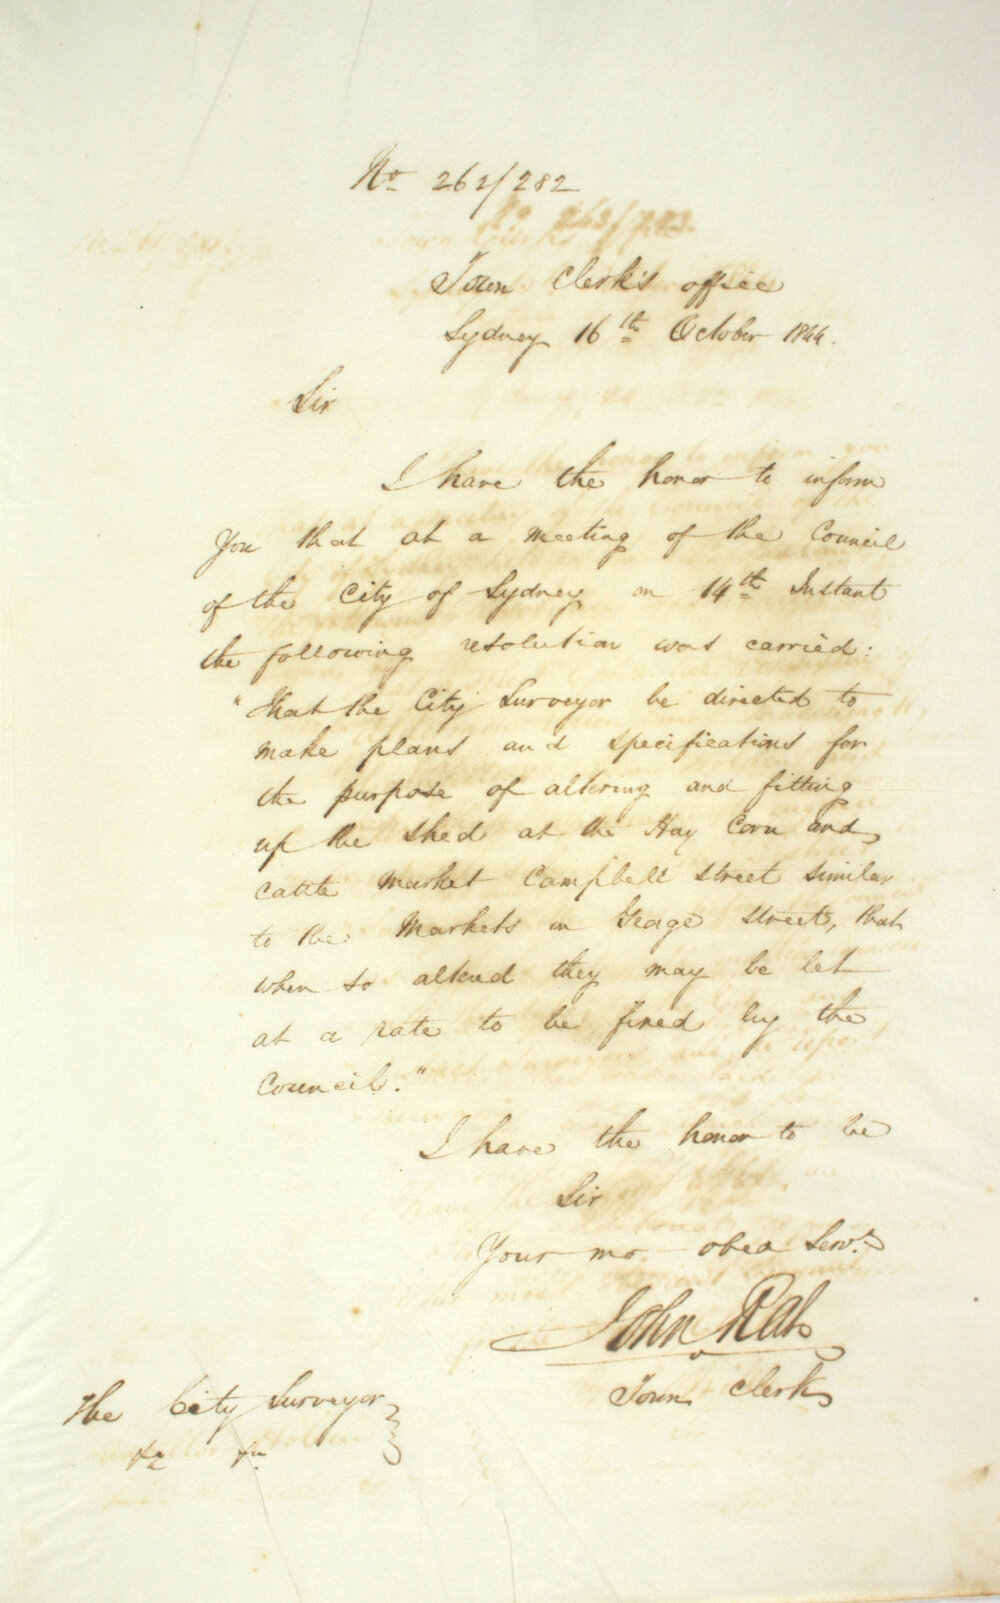 No 262/282
Town Clerk's office
Sydney 16th October 1844.
Sir
I have the honor to inform
You that at a meeting of the Council
of the City of Sydney on 14th Instant
the following resolution was carried:
"That the City Surveyor be directed to
make plans and specifications for
the purpose of altering and fitting
up the shed at the Hay Corn and
Cattle Market Campbell Street similar
to the Markets in George Street, that
when so altered they may be let
at a rate to be fixed by the
Council."
I have the honor to be
Sir
Your mo obed Servt
John Rae
Town Clerk
The City Surveyor
&c &c